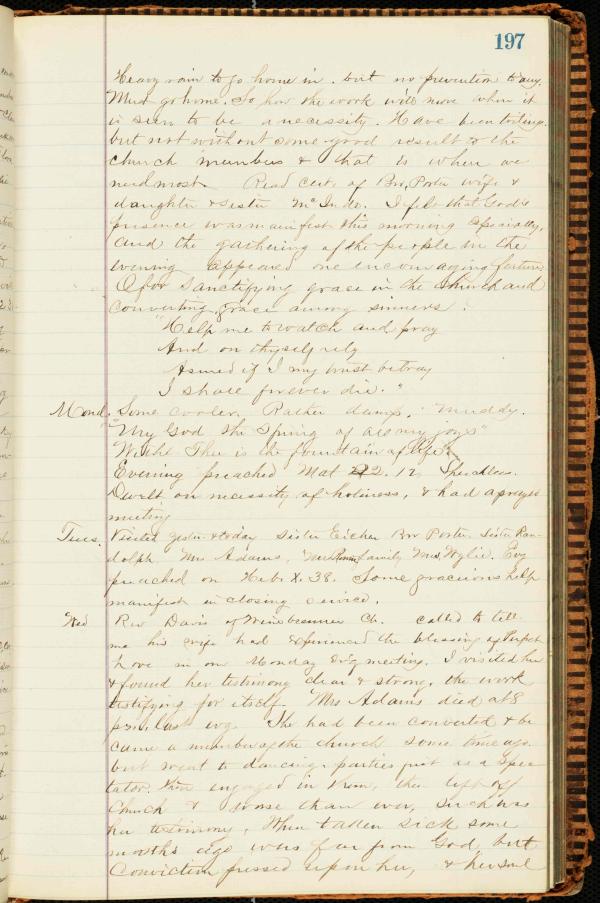 197
Heavy rain to go home in. but no prevention to any.
Must go home. So how the work will move when it
is seen to be a necessity. Have been tortings
but not without some good result to the
church members & that is when we
need most. Read Cert. of Bro. Porter wife &
daughter & sister McIndo. I felt that God's
presence was manifest this morning specially,
and the gathering of the people in the
evening appeared one encouraging feature
O for sanctifying grace in the Church and
converting grace among sinners.
"Help me to watch and pray
And on thyself rely
Asured if I my trust betray
I shall forever die."
Mond. Some cooler. Rather damp. Muddy.
"My God the Spring of all my joys"
With Thee is the fountain of life.
Evening preached Mat 22. 12 Speechless.
Dwelt on necessity of holiness, & had a prayer
meeting
Tues. Visited yester & today Sister Eicher Bro Porter. Sister Ran-
dolph Mrs Adams, family Mrs. Wylie. Evg
preached on Heb. X. 38. Some gracious help
manifest in closing service.
Wed Rev Davis of Ch. called to tell
me his wife had experienced the blessing of Perfect
Love in our Monday Evg meeting. I visited her
& found her testimony clear & strong, the work
testifying for itself. Mrs Adams died at 8
p.m. last evg. She had been converted & be
came a member of the church some time ago.
but went to dancing-parties just as a spec
tator. then engaged in them, then left off
Church & worse than ever, such was
her testimony. When taken sick some
months ago was far from God but
Conviction pressed upon her, & her soul